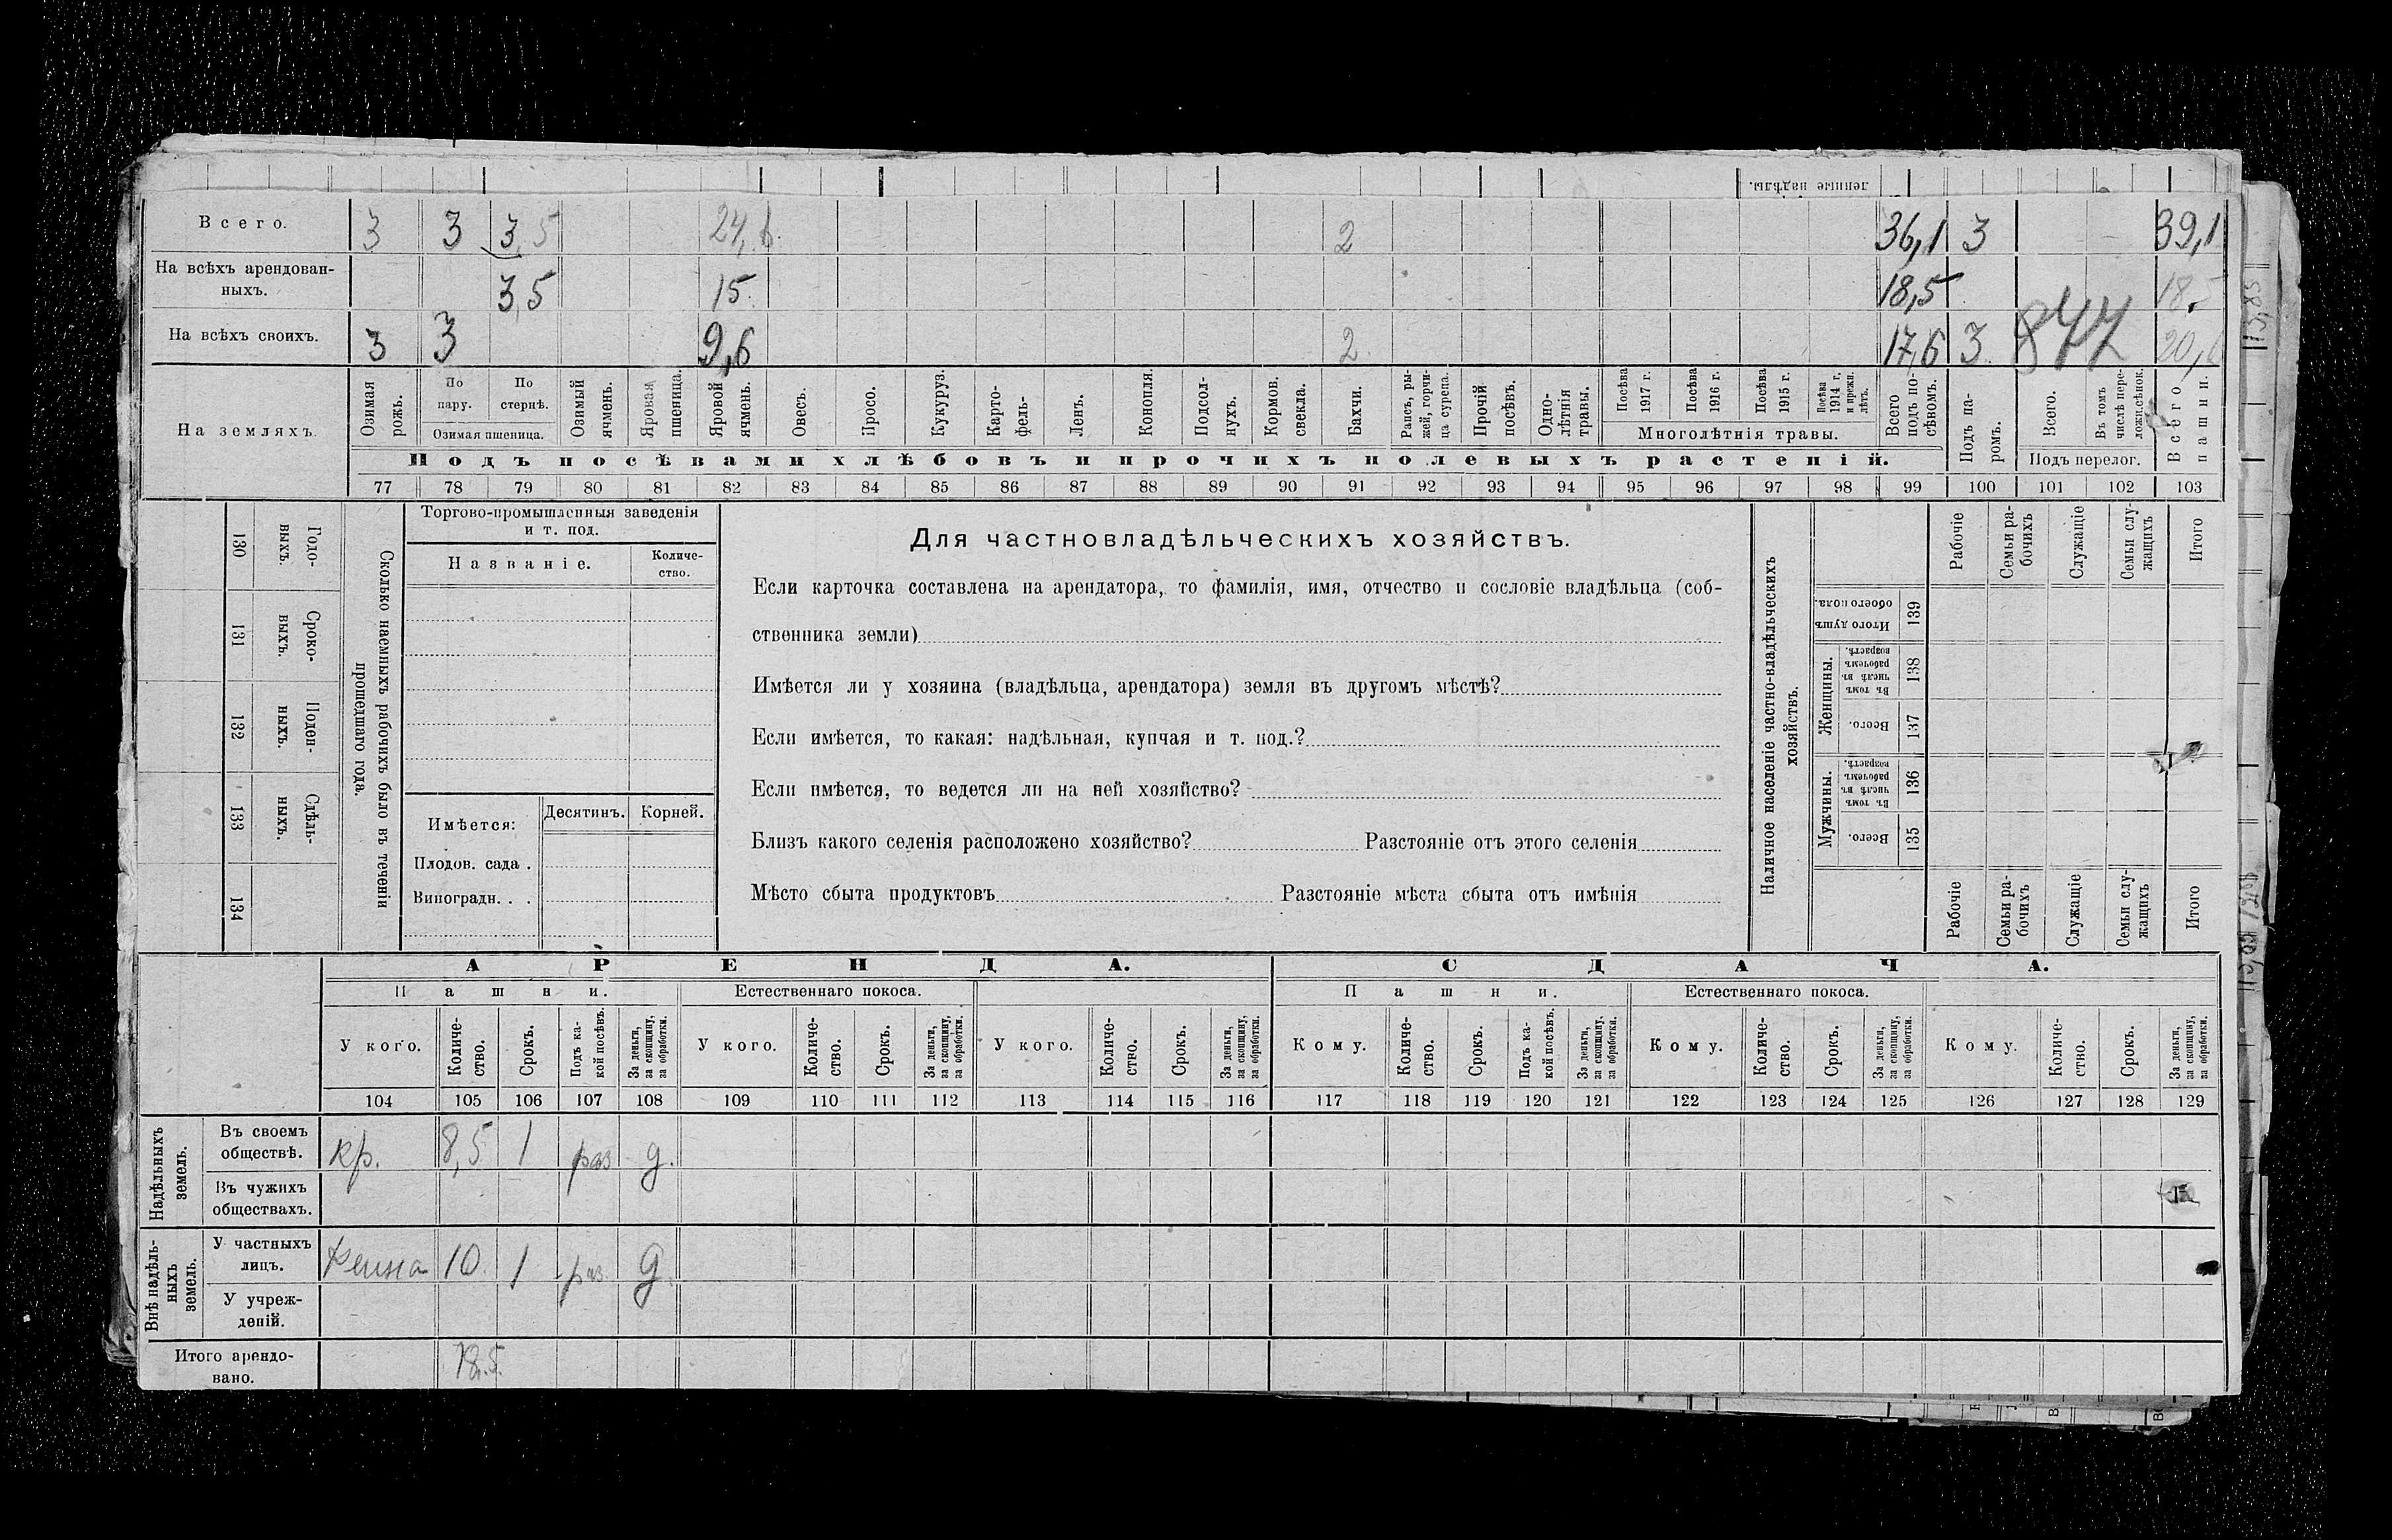 леннные надѣлы.
Всего. 3 3 3,5 24,6 2 36,1 3 39,1
На всѣхъ арендован-
ныхъ. 3,5 15 18,5 18,5
На всѣхъ своихъ. 3 3 9,6 2 17,6 3 20,6
На земляхъ.
Озимая рожь.
По пару.
По стернѣ.
Озимая пшеница.
Озимый ячмень.
Яровая пшеница.
Яровой ячмень.
Овесъ.
Просо.
Кукуруз.
Карто-
фель-
Ленъ.
Конопля.
Подсол-
нухъ.
Кормов.
свекла.
Бахчи.
Рапсъ, ры-
жей, горчи-
ца сурепа.
Прочій
посѣвъ.
Одно-
лѣтнія
травы.
Посѣва
1917 г.
Посѣва
1916 г.
Посѣва
1915 г.
Посѣва
1914 г.
и прежн.
лѣтъ.
Многолѣтнія травы.
Всего
подъ по-
сѣвомъ.
Подъ па-
ромъ.
Всего.
Въ томъ
числѣ пере-
ложн.сѣнок.
Подъ перелог.
Всего
пашни.
Подъ посѣвами хлѣбовъ и прочихъ полевыхъ растеній.
77 78 79 80 81 82 83 84 85 86 87 88 89 90 91 92 93 94 95 96 97 98 99 100 101 102 103
Сколько наемныхъ рабочихъ было въ теченіи
прошедшаго года.
Годо-
выхъ.
130
Сроко-
выхъ.
131
Поден-
ныхъ.
132
Сдѣль-
ныхъ.
133
134
Торгово-промышленныя заведенія
и т. под.
Названіе.
Количе-
ство.
Имѣется:
Десятинъ.
Корней.
Плодов. сада .
Виноградн. . .
Для частновладѣльческихъ хозяйствъ.
Если карточка составлена на арендатора, то фамилія, имя, отчество и сословіе владѣльца (соб-
ственника земли)
Имѣется ли у хозяина (владѣльца, арендатора) земля въ другомъ мѣстѣ?
Если имѣется, то какая: надѣльная, купчая и т. под.?
Если имѣется, то ведется ли на ней хозяйство?
Близъ какого селенія расположено хозяйство? Разстояніе отъ этого селенія
Мѣсто сбыта продуктовъ Разстояніе мѣста сбыта отъ имѣнія
Наличное населеніе частно-владѣльческихъ
хозяйствъ.
Рабочіе
Семьи ра-
бочихъ
Служащіе
Семьи слу-
жащихъ
Итого
Итого душъ
обоего пола.
139
Женщины.
Въ томъ
числѣ въ
рабочемъ
возрастѣ.
138
Всего.
137
Мужчины.
Въ томъ
числѣ въ
рабочемъ
возрастѣ.
136
Всего.
135
Рабочіе
Семьи ра-
бочихъ
Служащіе
Семьи слу-
жащихъ
Итого
АРЕНДА. СДАЧА.
Пашни. Естественнаго покоса. Пашни. Естественнаго покоса.
У кого.
Количе-
ство.
Срокъ.
Подъ ка-
кой посѣвъ.
За деньги,
за скопщину,
за обработки.
У кого.
Количе-
ство.
Срокъ.
За деньги,
за скопщину,
за обработки.
У кого.
Количе-
ство.
Срокъ.
За деньги,
за скопщину,
за обработки.
Кому.
Количе-
ство.
Срокъ.
Подъ ка-
кой посѣвъ.
За деньги,
за скопщину,
за обработки.
Кому.
Количе-
ство.
Срокъ.
За деньги,
за скопщину,
за обработки.
Кому.
Количе-
ство.
Срокъ.
За деньги,
за скопщину,
за обработки.
104 105 106 107 108 109 110 111 112 113 114 115 116 117 118 119 120 121 122 123 124 125 126 127 128 129
Надѣльныхъ
земель.
Въ своемъ
обществѣ. кр. 8,5 1 раз д.
Въ чужихъ
обществахъ.
Внѣ надѣль-
ныхъ
земель.
У частныхъ
лицъ. 10. 1 раз д.
У учреж-
деній.
Итого арендо-
вано. 18.5.